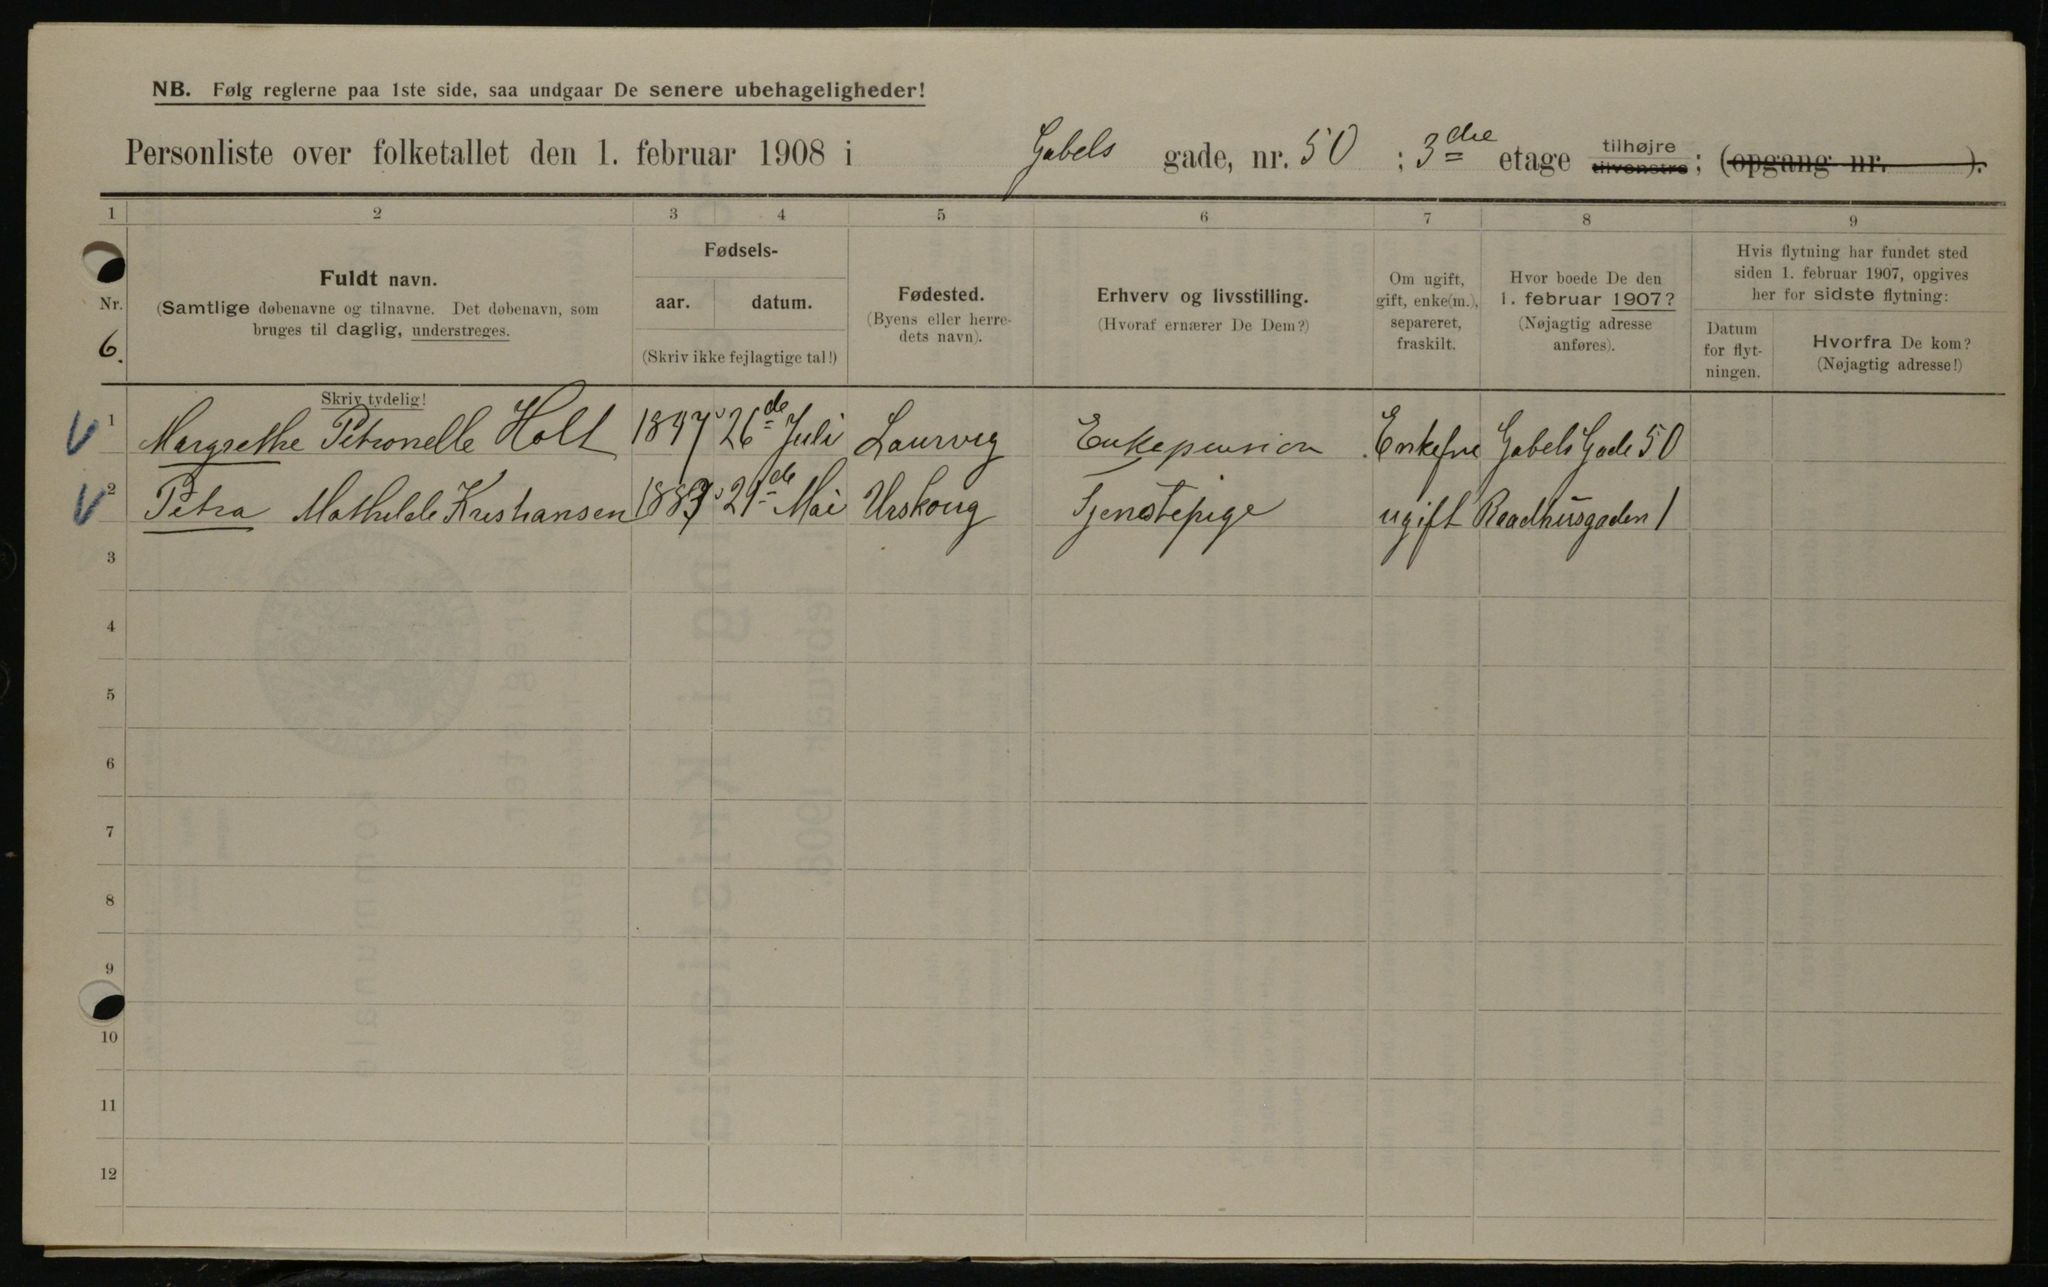 NB. Følg reglerne paa 1ste side, saa undgaar De senere ubehageligheder!
Personliste over folketallet den 1. februar 1908 i Gabels gade, nr. 50 ; 3die etage tilhøjre tilvenstre ; (opgang nr. ).
1 2 3 4 5 6 7 8 9
Nr. 6.
Fuldt navn.
(Samtlige døbenavne og tilnavne. Det døbenavn, som
bruges til daglig, understreges.
Fødsels-
aar. datum.
(Skriv ikke fejlagtige tal!)
Fødested.
(Byens eller herre-
dets navn).
Erhverv og livsstilling.
(Hvoraf ernærer De Dem?)
Om ugift,
gift, enke(m.),
separeret,
fraskilt.
Hvor boede De den
1. februar 1907?
(Nøjagtig adresse
anføres).
Hvis flytning har fundet sted
siden 1. februar 1907, opgives
her for sidste flytning:
Datum
for flyt-
ningen.
Hvorfra De kom?
(Nøjagtig adresse!)
Skriv tydelig!
1 Margrethe Petronelle Holt 26de Juli Laurvig Enkepension Enkefrue Gabels Gade 50
2 Petra Mathilde Kristiansen 21de Mai Urskoug Tjenestepige ugift Raadhusgaden 1
3
4
5
6
7
8
9
10
11
12